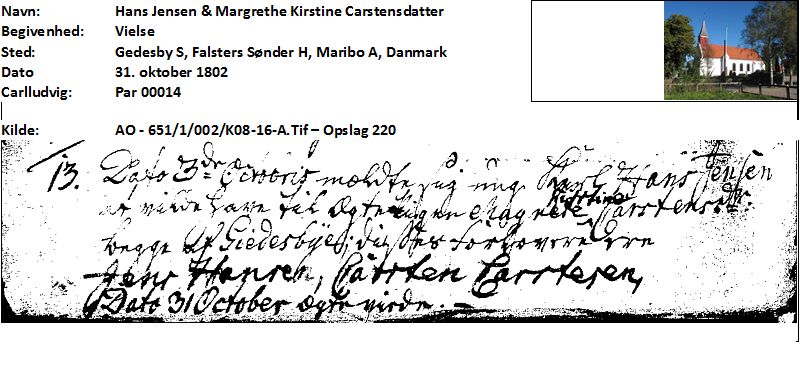 Navn: Hans Jensen & Margrethe Kirstine Carstensdatter
Begivenhed: Vielse
Sted: Gedesby S, Falsters Sønder H, Maribo A, Danmark
Dato 31. oktober 1802
Carlludvig: Par 00014
Kilde: AO - 651/1/002/K08-16-A.Tif – Opslag 220
13. Dato 3die Octobris meldte sig ung Karl Hans Jensen
at ville have til Ægte Pigen Magrete Kirstine Carstensdr.
begge af Giedesbye, disses forlovere ere
Jens Hansen, Carsten Carstesen,
Dato 31 October Ægte viede.